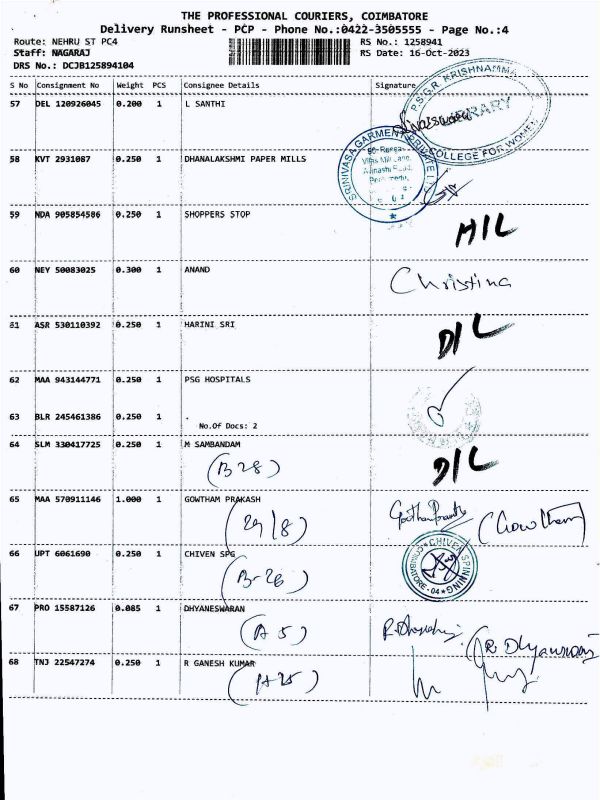 THE PROFESSIONAL COURIERS, COIMBATORE
Delivery Runsheet - PCP - Phone No.:0422-3505555 - Page No.:4
Route: NEHRU ST PC4 RS No.: 1258941
Staff: NAGARAJ RS Date: 16-Oct-2023
DRS No.: DCJB125894104
S No Consignment No Weight PCS Consignee Details Signature
57 DEL 120926045 0.200 1 L SANTHI
P.S.G.R. KRISHNAMMA
LIBRARY
COLLEGE FOR WOMEN
58 KVT 2931087 0.250 1 DHANALAKSHMI PAPER MILLS
SRINIVASA GARMENT PRIVATE
59 NDA 905854586 0.250 1 SHOPPERS STOP
H/L
60 NEY 50083025 0.300 1 ANAND
Christina
61 ASR 530110392 0.250 1 HARINI SRI
D/L
62 MAA 943144771 0.250 1 PSG HOSPITALS
63 BLR 245461386 0.250 1 .
No.Of Docs: 2
64 SLM 330417725 0.250 1 M SAMBANDAM
(B 28) D/L
65 MAA 570911146 1.000 1 GOWTHAM PRAKASH
(29/8) (Gowtham)
66 UPT 6061690 0.250 1 CHIVEN SPG
(B-26)
CHIVEN SPINNING
COIMBATORE - 04
67 PRO 15587126 0.085 1 DHYANESWARAN
(A 5)
68 TNJ 22547274 0.250 1 R GANESH KUMAR
(A 25)